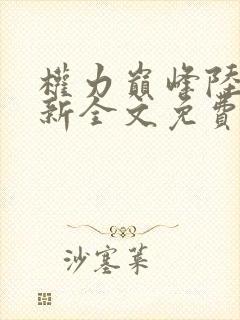 權力巔峰陸
新全文免費
沙塞葉